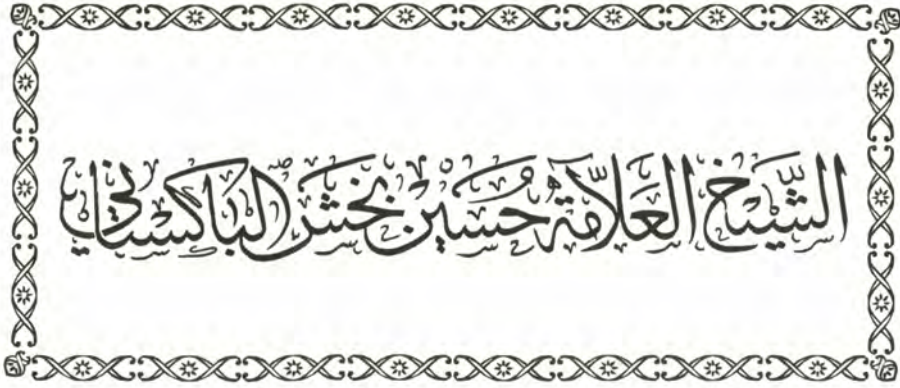 الشَّيْخ العَلاَّمَة حُسَيْن بَخش البَاكستَانِي